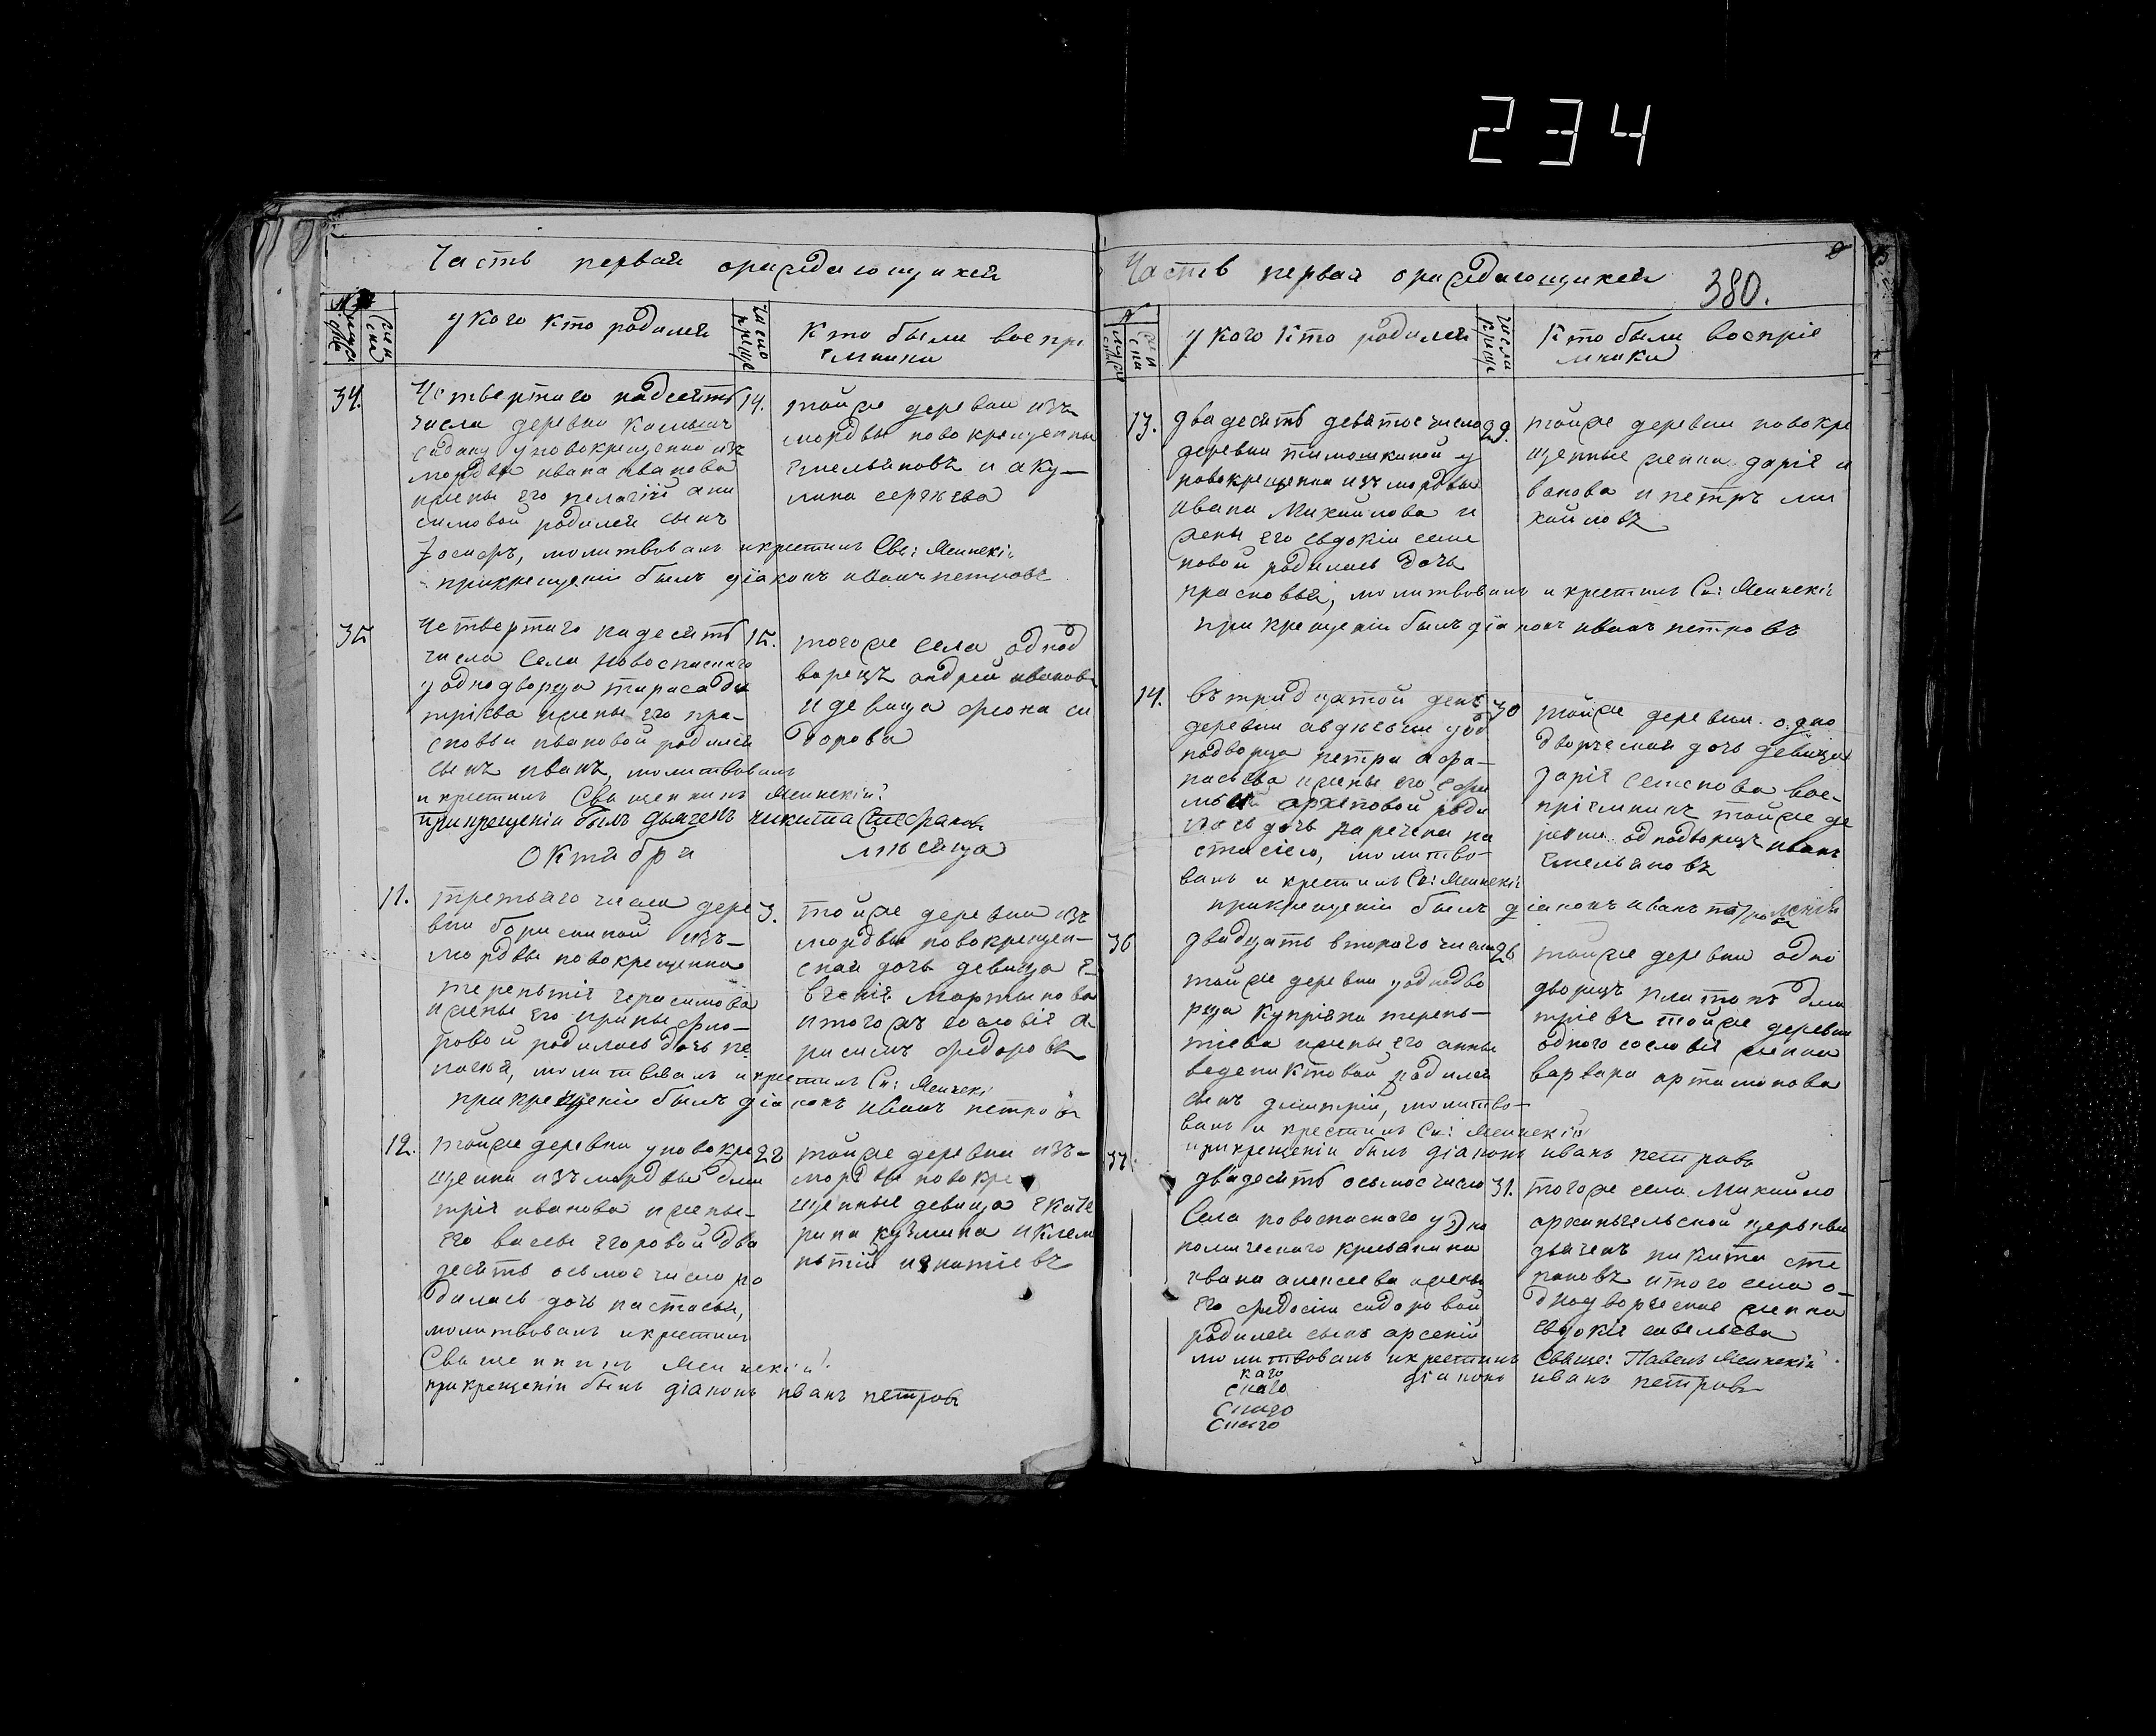 234
Часть первая ораждающихся
у кого кто родился
число
крещ
кто были воспрі
емники
34.
Четвертаго надесять
14.
числа деревни
у новокрещенна изъ
мордвы ивана иванова
ижены его пелагіи они
симовой родился сынъ
молитвовалъ икрестилъ Свя: Менскі:
прикрещеніи былъ діаконъ иванъ петровъ
тойже деревни изъ
мордвы новокрещенны
емельяновъ и аку-
лина сергѣева
35
Четвертаго надесять
15.
числа Села Новоспаскаго
у однодворца тараса дми
тріева ижены его пра-
сковьи ивановой родился
сынъ иванъ, молитвовалъ
и крестилъ Священникъ Менскій
прикрещеніи былъ дьячекъ никита Стефановъ
тогоже села однод
ворецъ андрей ивановъ
и девица феона си
дорова
Октября мѣсяца
11.
третьяго числа дере
3.
вни борискиной изъ-
мордвы новокрещенна
терентія герасимова
ижены его ирины фло-
ровой родилась дочь пе
лагея, молитвовалъ икрестилъ Св: Менскі
прикрещеніи былъ діаконъ иванъ петровъ
тойже деревни изъ
мордвы новокрещен-
ская дочь девица е-
вгенія Мартынова
итогожъ сословія а-
нисимъ федоровъ
12.
тойже деревни у новокре
28
щенна изъ мордвы дми
трія иванова ижены-
его васы егоровой два
десять осьмое число ро
дилась дочь настасья,
молитвовалъ икрестилъ
Священникъ Менскій
прикрещеніи былъ діаконъ иванъ петровъ
тойже деревни изъ-
мордвы новокре
щенные девица екате
рина кузмина иклем
ѣнтій игнатіевъ
Часть первая ораждающихся
380.
у кого кто родился
числа
крещ
Кто были воспріе
мники
13.
двадесять девятое число
29.
деревни тимошкиной у
новокрещенна изъ мордвы
ивана Михайлова и
жены его евдокіи семе
новой родилась дочь
прасковья, молитвовалъ и крестилъ Св: Менскі:
при крещеніи былъ діаконъ иванъ петровъ
тойже деревни новокре
щенные женка дарія и
ванова и петръ ми
хайловъ
14.
въ тридцатой день
30
деревни авдѣевки у од
нодворца петра афа-
насьева ижены его
архиповой роди
лась дочь наречена на
стасіею, молитво-
валъ и крестилъ Св: Менскі:
прикрещеніи былъ діаконъ иванъ
тойже деревни одно
дворческая дочь девица
дарія семенова вос-
пріемникъ тойже де
ревни однодворецъ иванъ
емельяновъ
36
двадцать втораго числа
26
тойже деревни у однодво
рца купріяна терень-
тіева ижены его анны
ведениктовой родился
сынъ димитрій, молитво-
валъ и крестилъ Св: Менскій
прикрещеніи былъ діаконъ иванъ петровъ
тойже деревни одно
дворецъ платонъ дми
тріевъ тойже деревни
одного сословія женка
варвара артамонова
37.
двадесять осьмое число
31.
Села новоспаскаго у эко
номическаго крестьянина
ивана алексеева жены
его федосіи сидоровой
родился сынъ арсеній
молитвовалъ икрестилъ Свяще: Павелъ Менскій
діаконъ иванъ петровъ
тогоже села Михайло
архангельской церькви
дьячекъ никита сте
пановъ итого села о-
днодворческая женка
евдокія савельева
каго
скаго
скаго
скаго